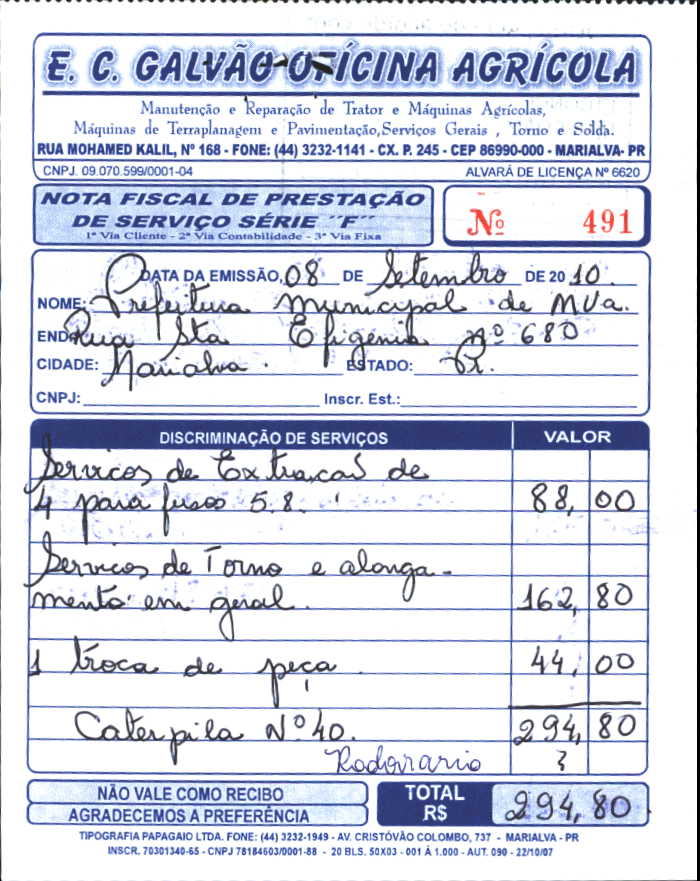 E. C. GALVÃO OFÍCINA AGRÍCOLA
Manutenção e Reparação de Trator e Máquinas Agrícolas,
Máquinas de Terraplanagem e Pavimentação,Serviços Gerais , Torno e Solda.
RUA MOHAMED KALIL, Nº 168 - FONE: (44) 3232-1141 - CX. P. 245 - CEP 86990-000 - MARIALVA- PR
CNPJ. 09.070.599/0001-04 ALVARÁ DE LICENÇA Nº 6620
NOTA FISCAL DE PRESTAÇÃO
DE SERVIÇO SÉRIE "F"
1ª Via Cliente - 2ª Via Contabilidade - 3ª Via Fixa
Nº 491
DATA DA EMISSÃO, 08 DE Setembro DE 20 10.
NOME: Prefeitura Municipal de MVa.
END: Rua Sta Efigênia nº 680
CIDADE: Marialva. ESTADO: Pr.
CNPJ: Inscr. Est.:
DISCRIMINAÇÃO DE SERVIÇOS VALOR
Servicos de Extracaõ de
4 para fusos 5.8. 88,00
Servicos de Torno e alonga-
mento em geral. 162,80
1 troca de peça 44,00
Caterpila Nº 40. 294,80
Rodoviario
NÃO VALE COMO RECIBO
AGRADECEMOS A PREFERÊNCIA
TOTAL
R$ 294,80
TIPOGRAFIA PAPAGAIO LTDA. FONE: (44) 3232-1949 - AV. CRISTÓVÃO COLOMBO, 737 - MARIALVA - PR
INSCR. 70301340-65 - CNPJ 78184603/0001-88 - 20 BLS. 50X03 - 001 Á 1.000 - AUT. 090 - 22/10/07